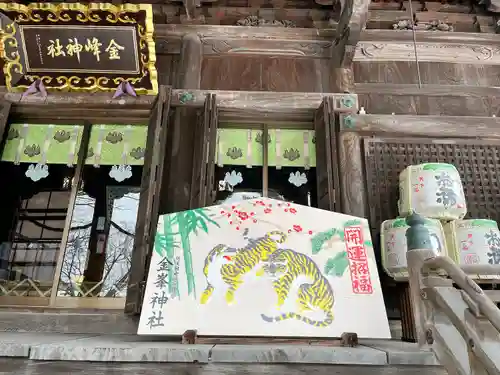 金峰神社
開運招福
金峯神社